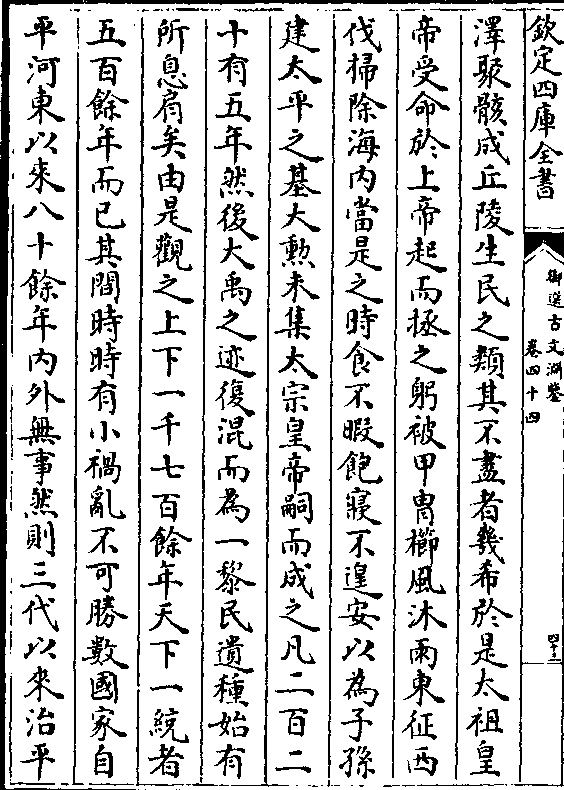 欽定四庫全書
御選古文淵鑒
卷四十四
四十二
澤聚骸成丘陵生民之類其不盡者幾希於是太祖皇
帝受命於上帝起而拯之躬被甲胄櫛風沐雨東征西
伐掃除海內當是之時食不暇飽寢不遑安以為子孫
建太平之基大勲未集太宗皇帝嗣而成之凡二百二
十有五年然後大禹之迹復混而為一黎民遺種始有
所息肩矣由是觀之上下一千七百餘年天下一統者
五百餘年而已其閒時時有小禍亂不可勝數國家自
平河東以來八十餘年內外無事然則三代以來治平